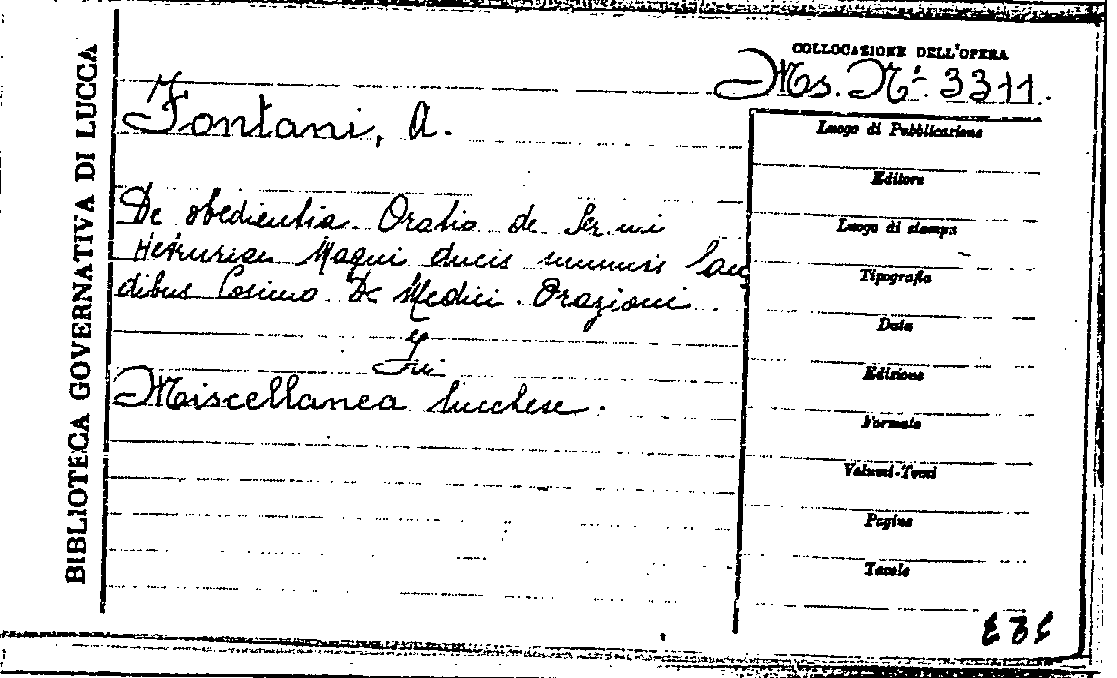 BIBLIOTECA GOVERNATIVA DI LUCCA
COLLOCAZIONE DELL'OPERA
Ms. Nº. 3311.
Fontani, A.
De obedientia. Oratio de Ser.mi
Hetruriae Magni ducis summis lau
dibus Cosimo De Medici. Orazioni.
In
Miscellanea lucchese.
Luogo di Pubblicazione
Editore
Luogo di stampa
Tipografia
Data
Edizione
Formato
Volumi-Tomi
Pagine
Tavole